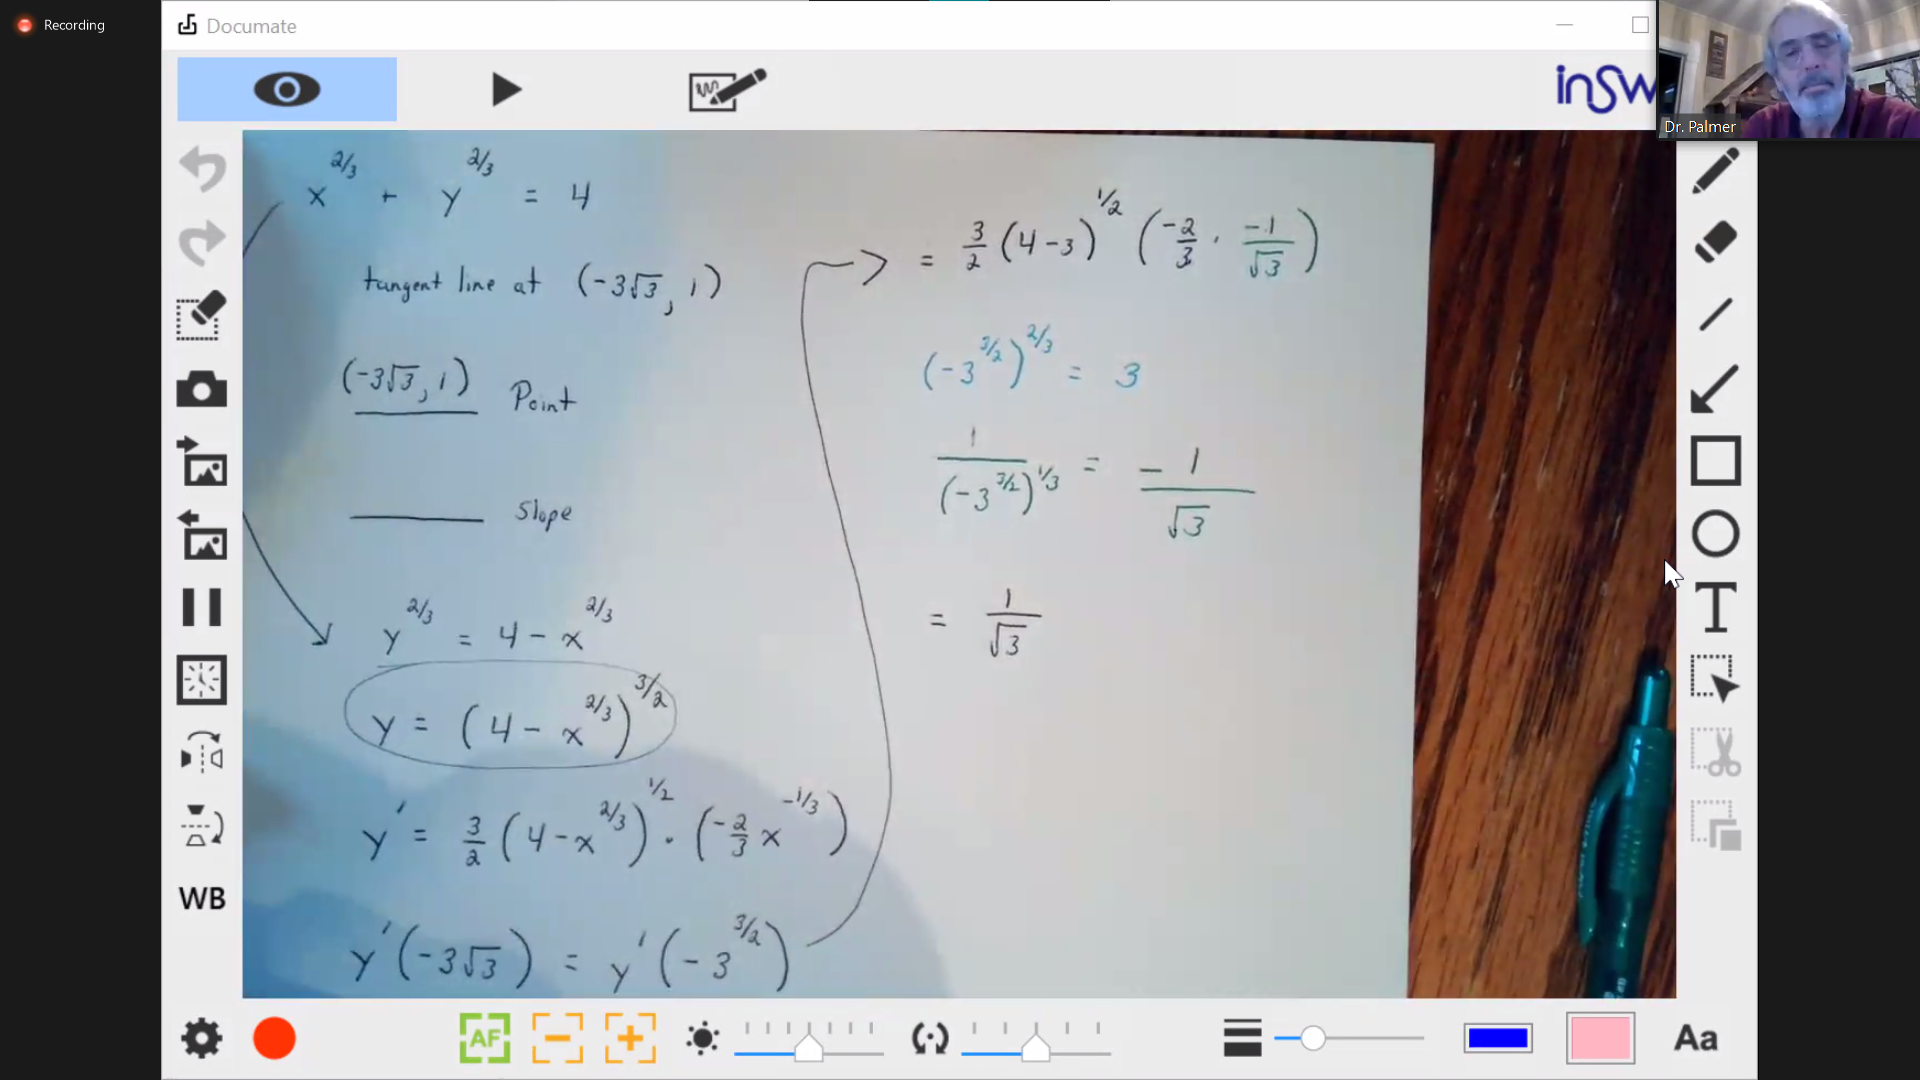 Recording
Documate
inSw
Dr. Palmer
x^2/3 + y^2/3 = 4
tangent line at (-3√3, 1)
(-3√3, 1) Point
slope
y^2/3 = 4 - x^2/3
y = (4 - x^2/3)^3/2
y' = 3/2 (4 - x^2/3)^1/2 · (-2/3 x^-1/3)
y'(-3√3) = y'(-3^3/2)
= 3/2 (4-3)^1/2 (-2/3 · -1/√3)
(-3^3/2)^2/3 = 3
1/(-3^3/2)^1/3 = - 1/√3
= 1/√3
WB
AF
T
Aa